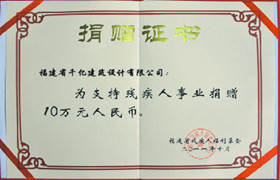 捐赠证书
福建省千亿建筑设计有限公司:
为支持残疾人事业捐赠
10万元人民币。
福建省残疾人福利基金会
二〇一一年十月